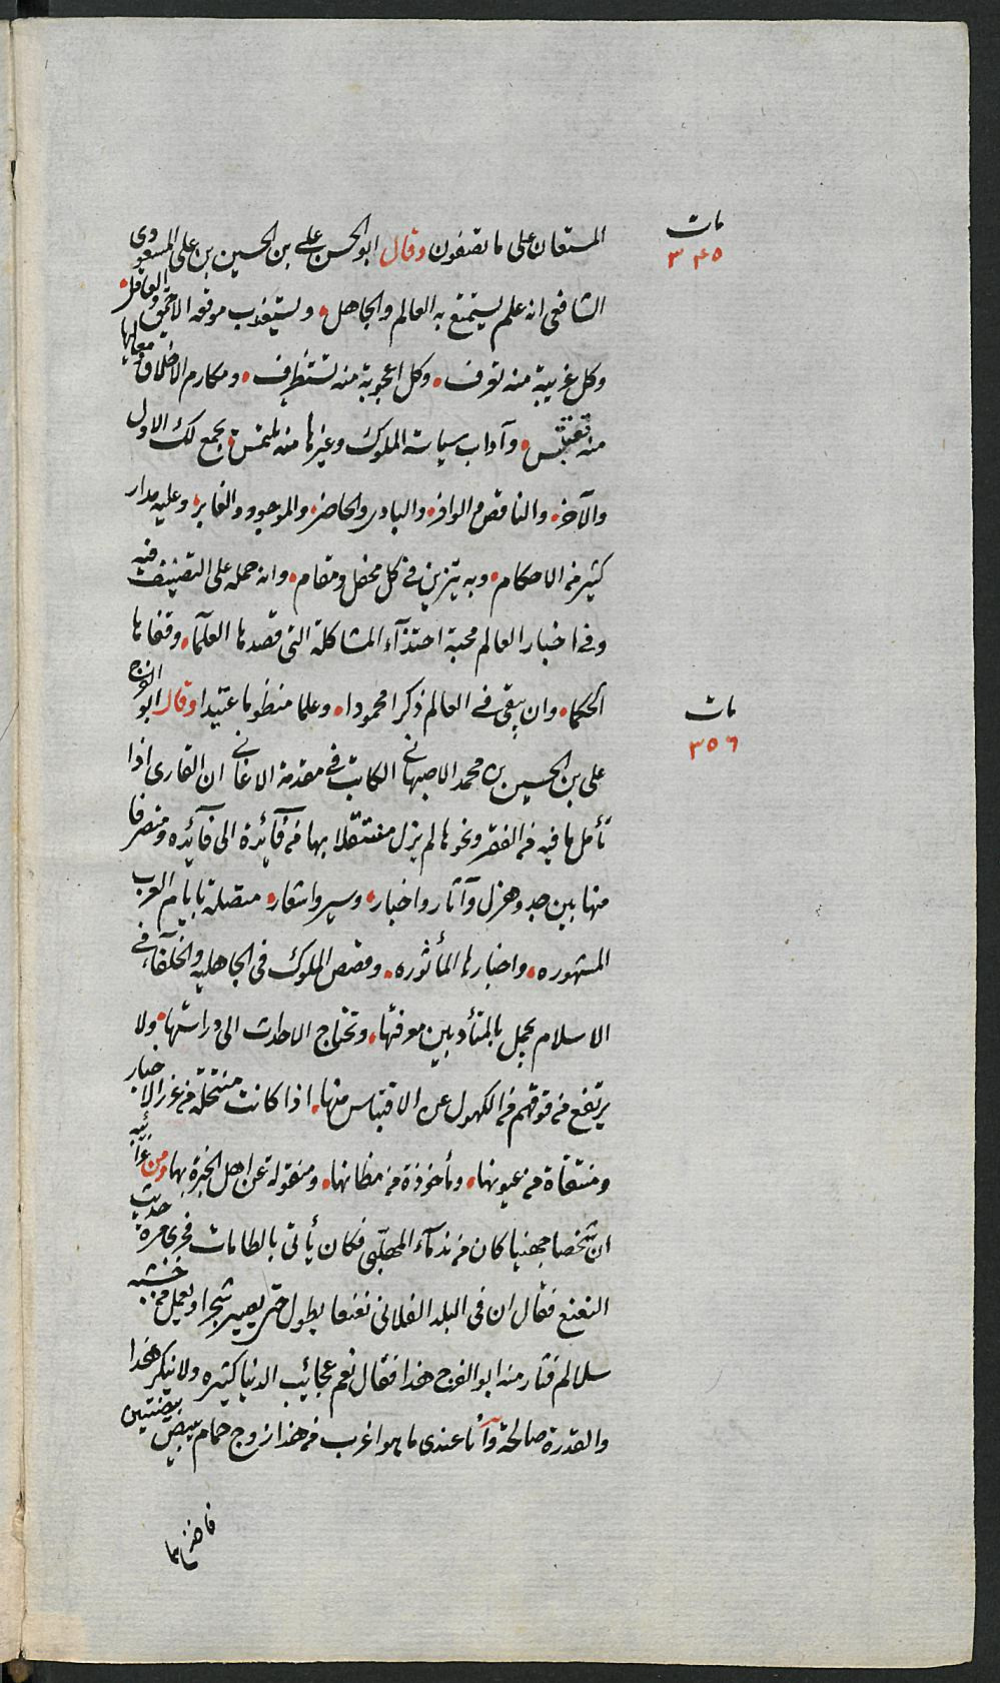 مات
٣٤٥
المستعان على ما تصفون وقال ابو الحسن علي بن الحسين بن على المسعودى
الشافعى انه علم يستمتع به العالم والجاهل، ويستعذب موقعه الاحمق والعاقل،
وكل غريبة منه تعرف، وكل اعجوبة منه تستظرف، ومكارم الاخلاق ومعاليها
منه تقتبس، وآداب سياسة الملوك وغيرها منه تلتمس، يجمع لك الاول
والآخر، والناقص والوافر، والبادى والحاضر، والموجود والغابر، وعليه مدار
كثير من الاحكام، وبه يتزين فى كل محفل ومقام، وانه حمله على التصنيف فيه
وفى اخبار العالم محبة احتذآء المشاكلة التى قصدها العلمآء، وقفاها
الحكماء، وان يبقى فى العالم ذكرا محمودا، وعلما منظوما عتيدا وقال ابو الفرج
مات
٣٥٦
على بن الحسين بن محمد الاصبهانى الكاتب فى مقدمة الاغانى ان القارى اذا
تأمل ما فيه من الفقر ونحوها لم يزل متنقلا بها من فآئدة الى فآئده ومتصرفا
منها بين جد وهزل وآثار واخبار، وسير واشعار، متصلة بايام العرب
المشهوره، واخبارها المأثوره، وقصص الملوك فى الجاهليه والخلفآء فى
الاسلام يجمل بالمتأدبين معرفتها، وتحتاج الاحداث الى دراستها، ولا
يرتفع من فوقهم من الكهول عن الاقتباس منها، اذا كانت منتحلة من غرر الاخبار
ومنتقاة من عيونها، ومأخوذة من مظانها، ومنقولة عن اهل الخبرة بها ومن غرآئبه
ان شخصا جهنيا كان من ندمآء المهلبى فكان يأتى بالطامات فجرى مرة حديث
النعنع فقال ان فى البلد الفلانى نعنعا يطول حتى يصير شجرا ويعمل من خشبه
سلالم فثار منه ابو الفرج هذا فقال نعم عجائيب الدنيا كثيره ولا ينكر هذا
والقدرة صالحة وآنا عندى ما هو اغرب من هذا زوج حمام يبيض بيضتين
فاخذهما